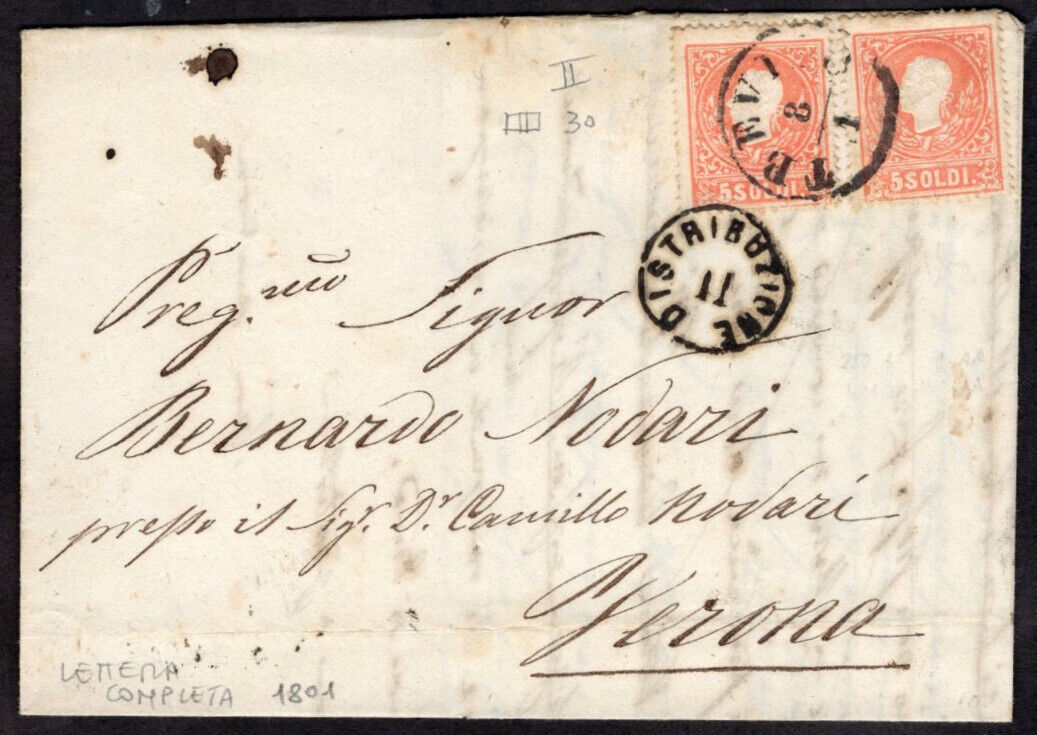 II
30
5 SOLDI.
5 SOLDI.
TREVISO
8
DISTRIBUZIONE
11
Preg.mo Signor
Bernardo Nodari
presso il Sigr. Dr. Camillo Nodari
Verona
LETTERA
COMPLETA 1801